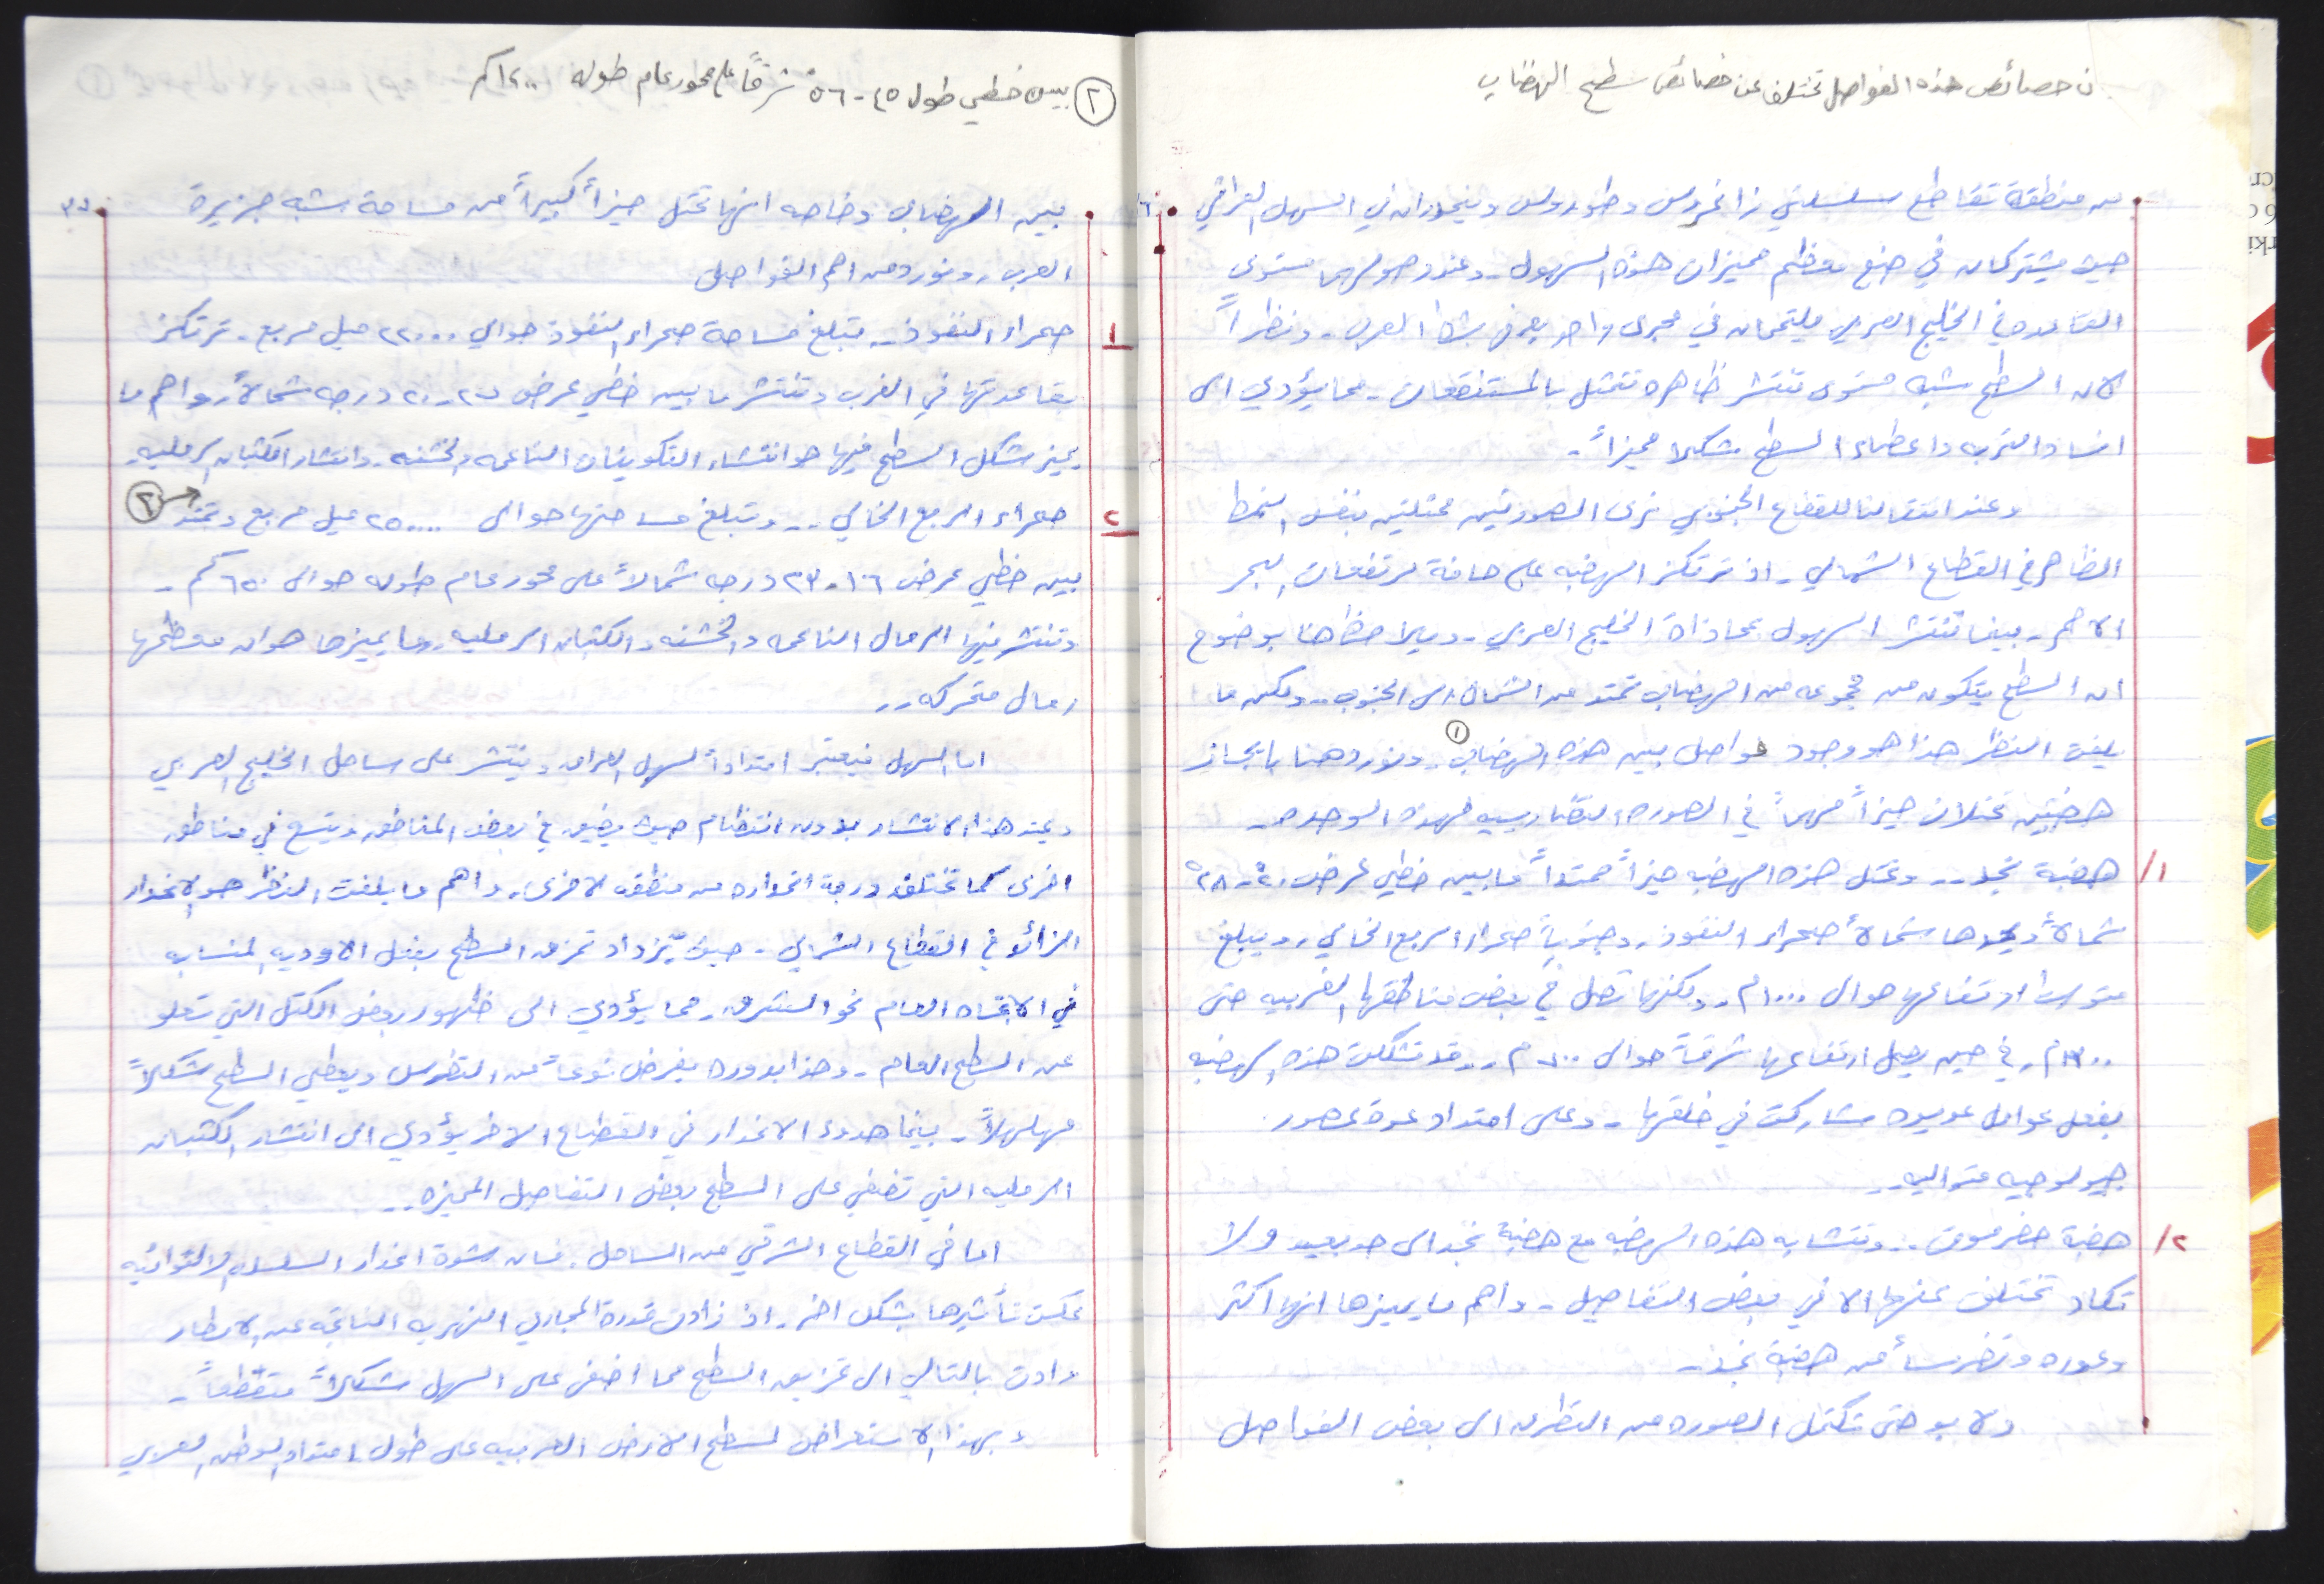 ن خصائص هذه الفواصل تختلف عن خصائص سطح الهضاب
من منطقة تقاطع سلسلتي زاغروس وطوروس وينحدران في السهل العراقي
حيث يشتركان في صنع معظم مميزات هذه السهول - وعند وصولهما مستوى
القاعده في الخليج العربي يلتحمان في مجرى واحد يعرف بشط العرب - ونظراً
لان السطح شبه مستوى تنتشر ظاهره تتمثل بالمستنقعات - مما يؤدي الى
افساد التربه واعطاء السطح شكلا مميزاً -
وعند انتقالنا للقطاع الجنوبي نرى الصورتين ممثلتين بنفس النمط
الظاهر في القطاع الشمالي - اذ ترتكز الهضبه على حافة مرتفعات البحر
الاحمر - بينما تنتشر السهول بمحاذاة الخليج العربي - ويلاحظ هنا بوضوح
ان السطح يتكون من مجموعه من الهضاب تمتد من الشمال الى الجنوب - ولكن ما
يلفت النظر هذا هو وجود فواصل بين هذه الهضاب ① - ونورد هنا بايجاز
هضبتين تحتلان حيزاً مهماً في الصوره التضاريسيه لهذه الوحده -
١/ هضبة نجد - - وتحتل هذه الهضبه حيزاً ممتداً ما بين خطي عرض ٢٠ - ٢٨°
شمالاً ويحدها شمالاً صحراء النفوذ - وجنوباً صحراء الربع الخالي - ويبلغ
متوسط ارتفاعها حوالى ١٠٠٠م - ولكنها تصل في بعض مناطقها الغربيه حتى
١٣٠٠م - في حين يصل ارتفاعها شرقاً حوالى ٧٠٠م - وقد تشكلت هذه الهضبه
بفعل عوامل عديده شاركت في خلقها - وعلى امتداد عدة عصور
جيولوجيه متواليه -
٢/ هضبة حضرموت - - وتتشابه هذه الهضبه مع هضبة نجد الى حد بعيد ولا
تكاد تختلف عنها الا في بعض التفاصيل - واهم ما يميزها انها اكثر
وعوره وتضرساً من هضبة نجد -
ولا بد حتى تكتمل الصوره من التطرق الى بعض الفواصل
② بين خطي طول ٤٥ - ٥٦° شرقاً على محور عام طوله ١٢٠٠كم
بين الهضاب وخاصه انها تحتل حيزاً كبيراً من مساحة شبه جزيرة
العرب - ونورد من اهم الفواصل
١ صحراء النفوذ - - تبلغ مساحة صحراء النفوذ حوالي ٢٢٠٠٠ ميل مربع - ترتكز
بقاعدتها في الغرب وتنتشر ما بين خطي عرض ٢٧ - ٢٠ درجه شمالاً - واهم ما
يميز شكل السطح فيها هو انتشار التكوينات الناعمه والخشنه - وانتشار الكثبان الرمليه -
٢ صحراء الربع الخالي - - وتبلغ مساحتها حوالى ٢٥٠٠٠٠ ميل مربع وتمتد → ②
بين خطي عرض ١٦ - ٢٣ درجه شمالاً على محور عام طوله حوالى ٦٥٠ كم -
وتنتشر فيها الرمال الناعمه والخشنه والكثبان الرمليه - وما يميزها هو ان معظمها
رمال متحركه - -
اما السهل فيعتبر امتداداً لسهل العراق وينتشر على ساحل الخليج العربي
ويمتد هذا الانتشار بدون انتظام حيث يضيق في بعض المناطق ويتسع في مناطق
اخرى كما تختلف درجة انحداره من منطقه لاخرى - واهم ما يلفت النظر هو الانحدار
الزائد في القطاع الشمالي - حيث يزداد تمزق السطح بفعل الاوديه المنسابه
في الاتجاه العام نحو الشرق - مما يؤدي الى ظهور بعض الكتل التي تعلو
عن السطح العام - وهذا بدوره يفرض نوعاً من التضرس ويعطي السطح شكلاً
مهلهلاً - بينما هدوء الانحدار في القطاع الاخر يؤدي الى انتشار الكثبان
الرمليه التي تضفي على السطح بعض التفاصيل المميزه -
اما في القطاع الشرقي من الساحل - فان شدة انحدار السلاسل الالتوائيه
عكست تأثيرها بشكل اخر - اذ زادت قدرة المجاري النهريه الناتجه عن الامطار
وادت بالتالي الى تمزيق السطح مما اضفى على السهل شكلاً متقطعاً -
وبهذا الاستعراض لسطح الارض العربيه على طول امتداد الوطن العربي